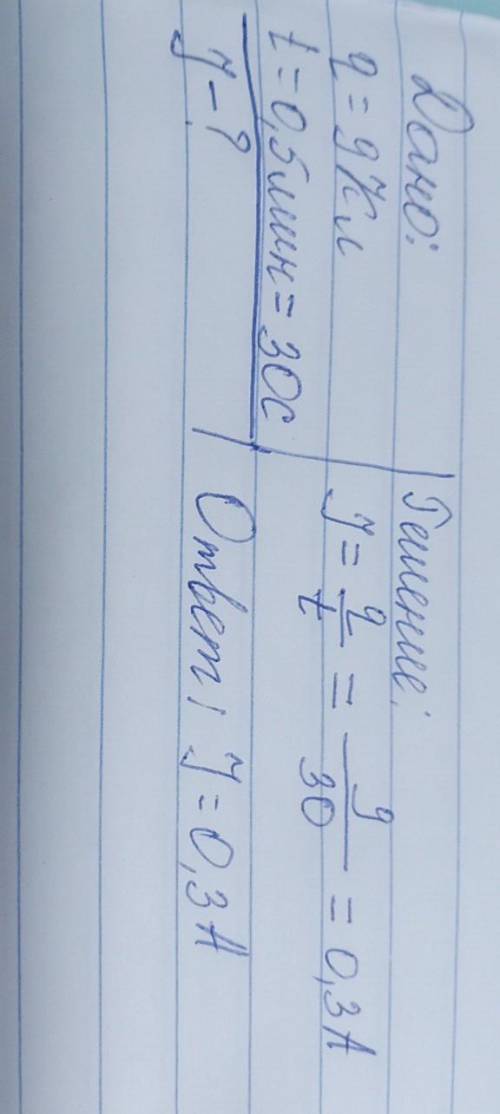 Дано:
q = 9 Кл
t = 0,5 мин = 30 с
J - ?
Решение:
J = q/t = 9/30 = 0,3 А
Ответ: J = 0,3 А